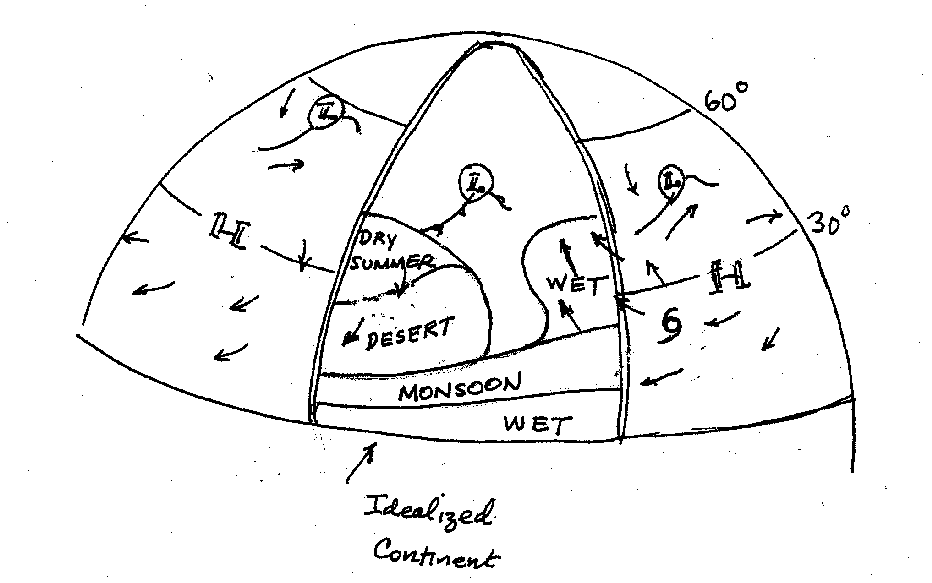 60°
L
L
L
30°
H
DRY
SUMMER
H
WET
DESERT
MONSOON
WET
Idealized
Continent